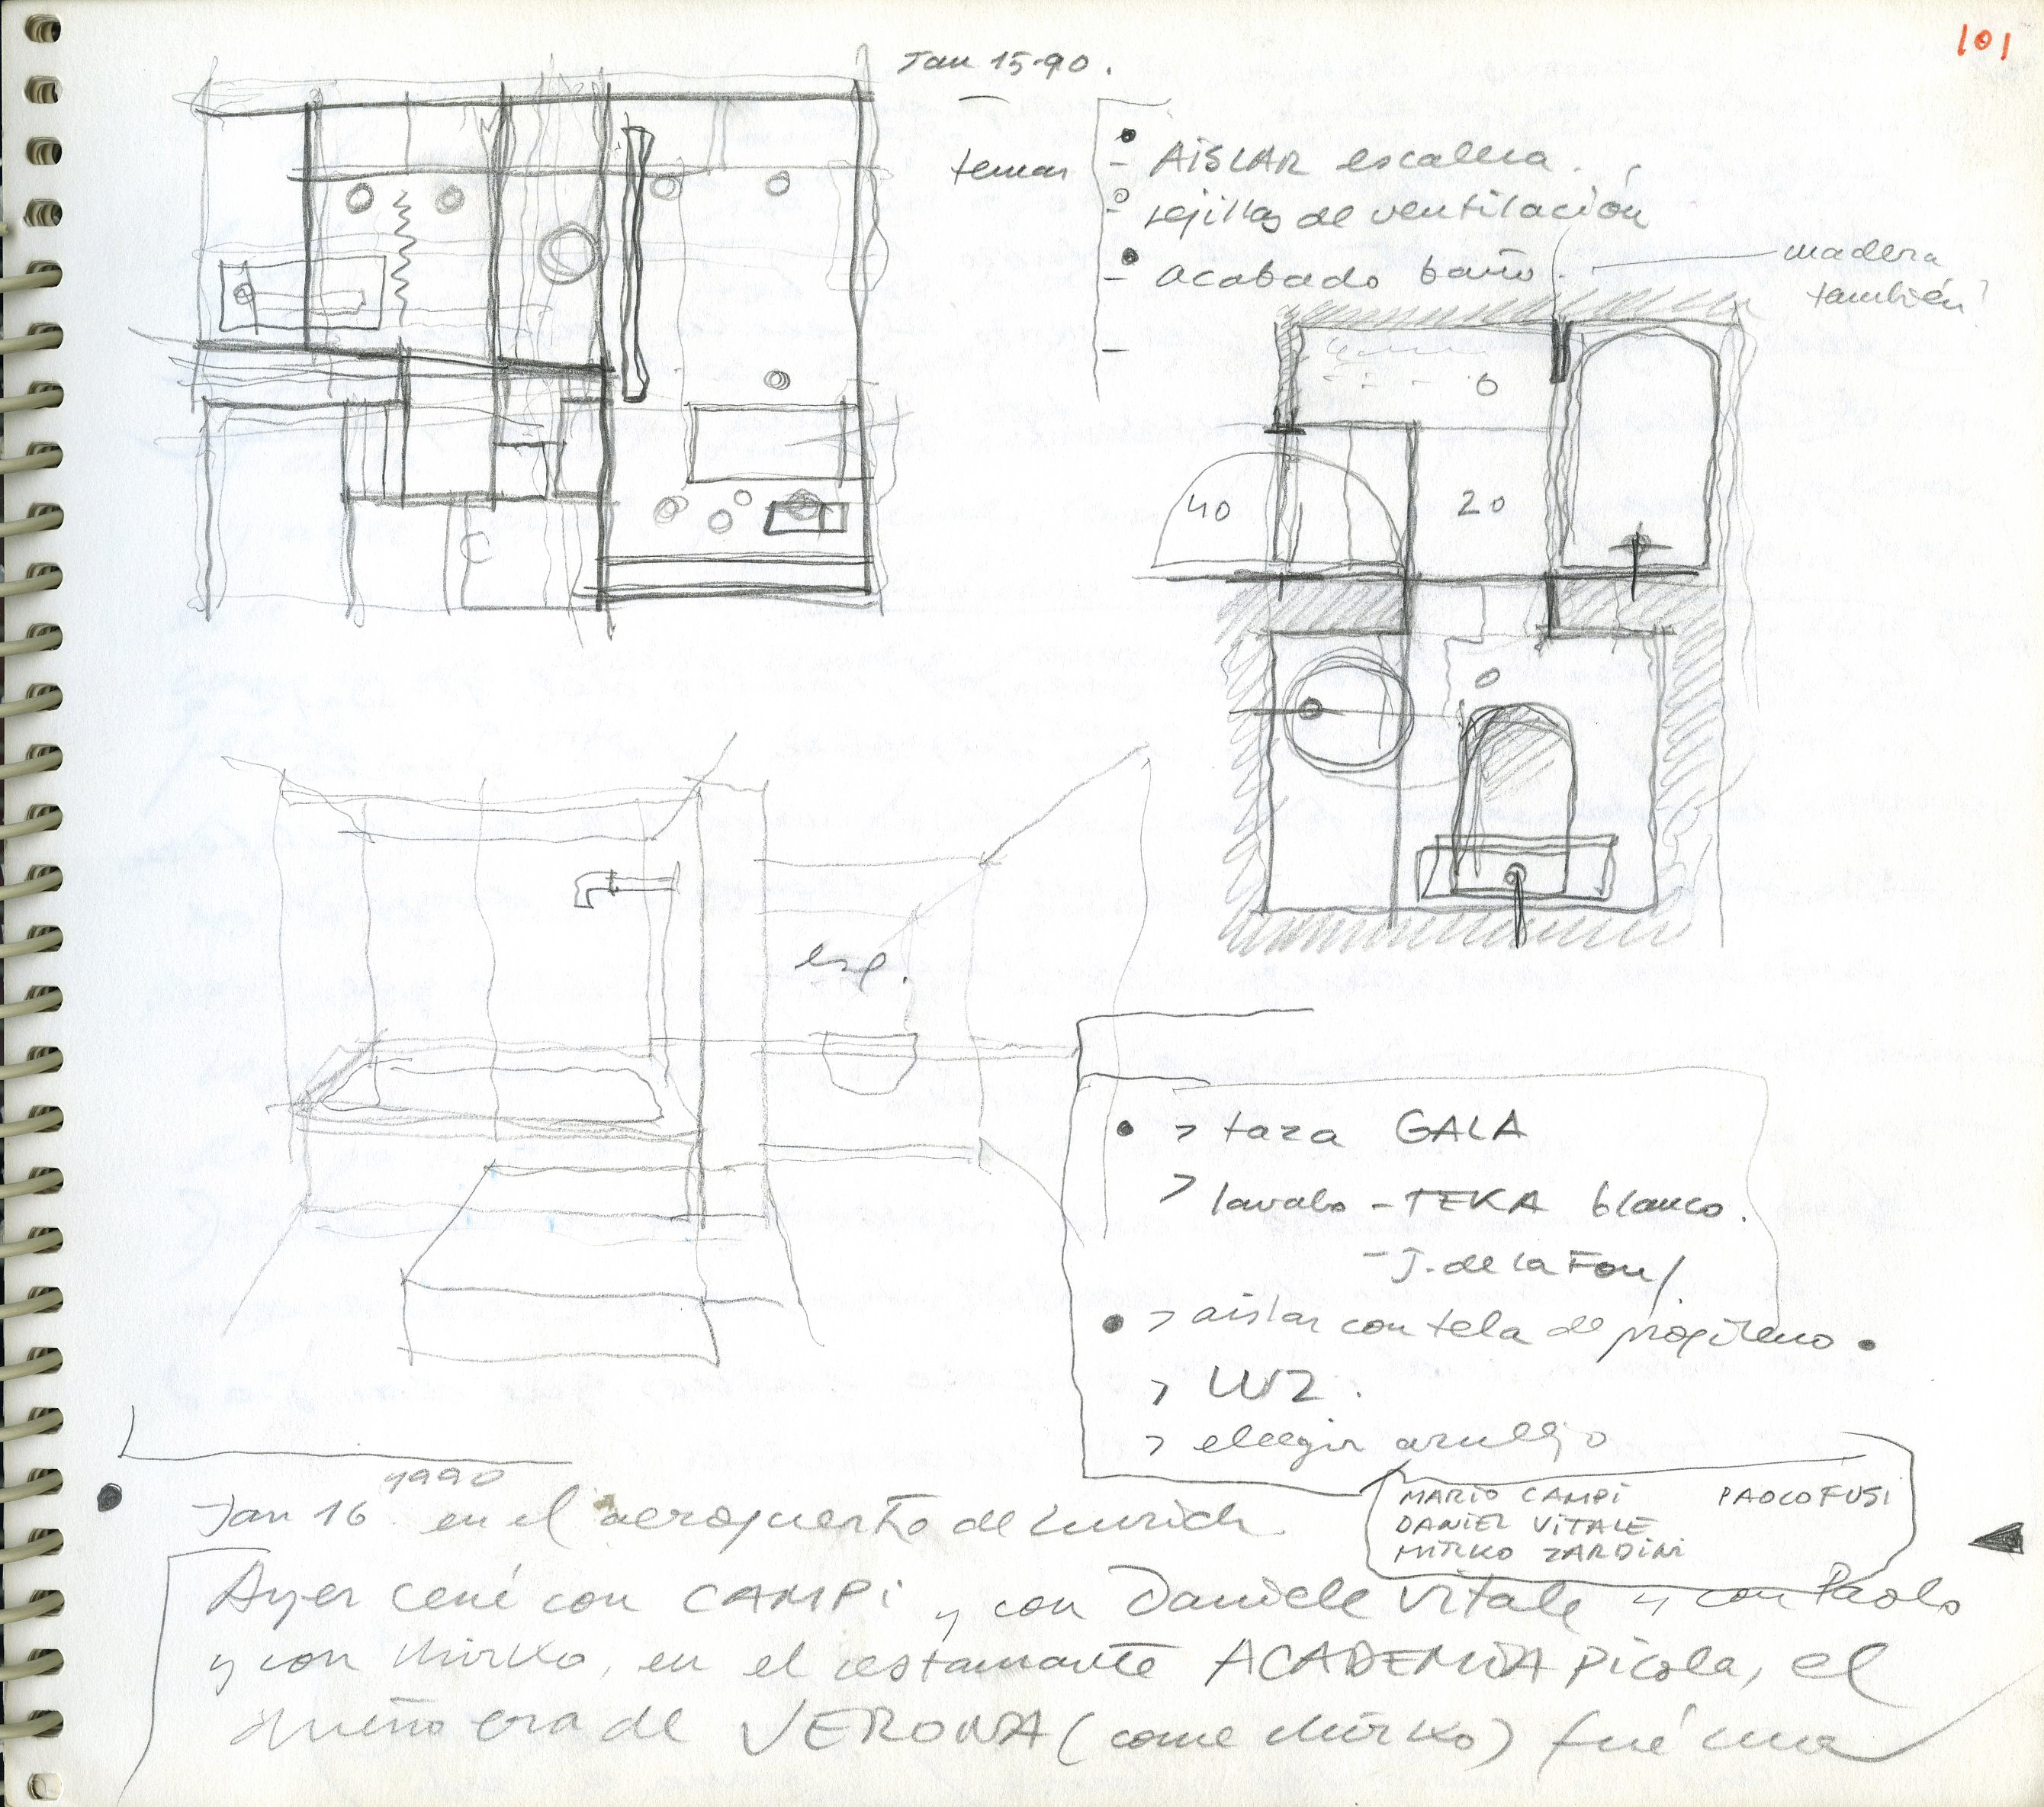 101
Jan 15-90.
temas
- AISLAR escalera.
- rejillas de ventilación
- acabado baño.
madera
también?
40
20
esp.
> taza GALA
> lavabo - TEKA blanco.
- J. de la Fon/
> aislar con tela de propileno
> LUZ.
> eleegir azulejo
1990
Jan 16 en el aeropuerto de Zurich.
MARIO CAMPI PAOLO FUSI
DANIEL VITALE
MIRKO ZARDINI
Ayer cené con CAMPI y con Daniele Vitale y con Paolo
y con Mirko, en el restaurante ACADEMIA picola, el
dueño era de VERONA (come Mirko) fué una